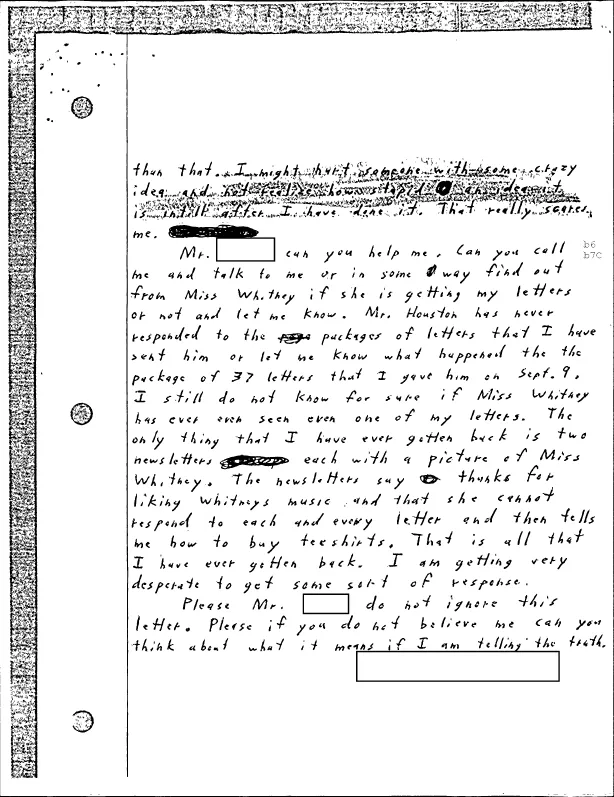 than that. I might hurt someone with some crazy
idea and not realize how stupid an idea it
is intill after I have done it. That really scares
me.
Mr. can you help me. Can you call
b6
b7C
me and talk to me or in some way find out
from Miss Whitney if she is getting my letters
or not and let me know. Mr. Houston has never
responded to the packages of letters that I have
sent him or let me know what happened the the
package of 37 letters that I gave him on Sept. 9.
I still do not know for sure if Miss Whitney
has ever even seen even one of my letters. The
only thing that I have ever gotten back is two
newsletters each with a picture of Miss
Whitney. The newsletters say thanks for
liking Whitneys music and that she cannot
respond to each and every letter and then tells
me how to buy teeshirts. That is all that
I have ever gotten back. I am getting very
desperate to get some sort of response.
Please Mr. do not ignore this
letter. Please if you do not believe me can you
think about what it means if I am telling the truth.